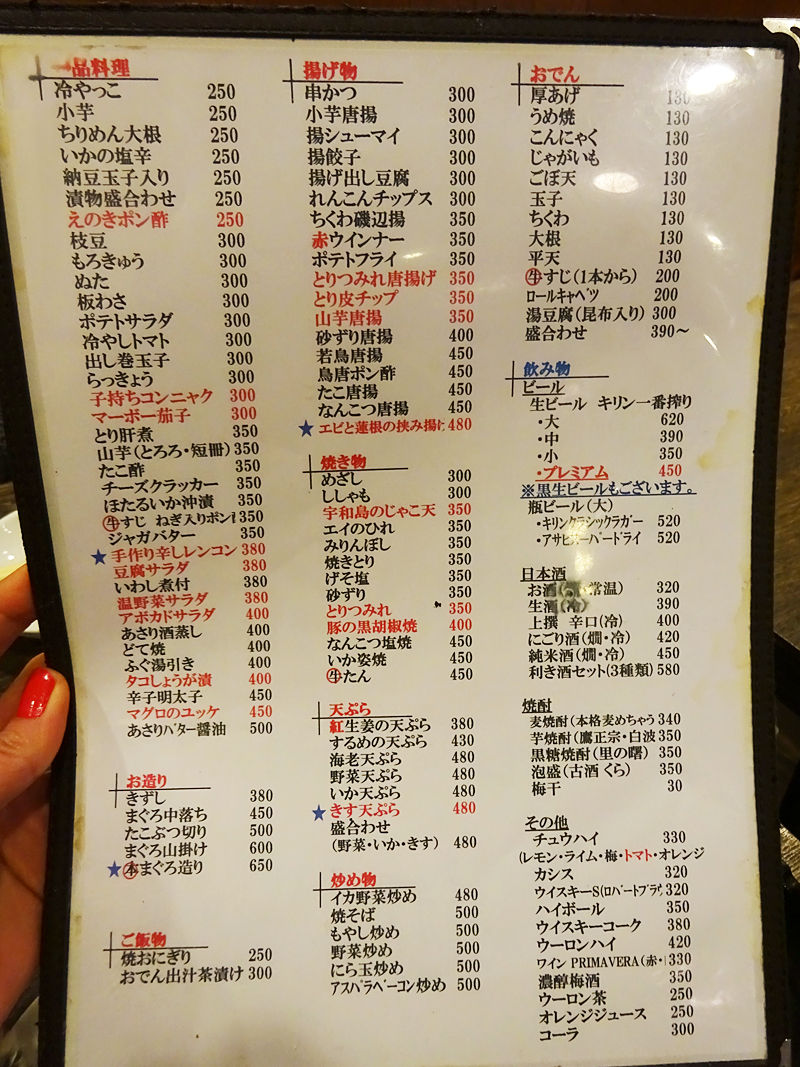 一品料理
冷やっこ 250
小芋 250
ちりめん大根 250
いかの塩辛 250
納豆玉子入り 250
漬物盛合わせ 250
えのきポン酢 250
枝豆 300
もろきゅう 300
ぬた 300
板わさ 300
ポテトサラダ 300
冷やしトマト 300
出し巻玉子 300
らっきょう 300
子持ちコンニャク 300
マーボー茄子 300
とり肝煮 350
山芋(とろろ・短冊) 350
たこ酢 350
チーズクラッカー 350
ほたるいか沖漬 350
牛すじ ねぎ入りポン 350
ジャガバター 350
★手作り辛しレンコン 380
豆腐サラダ 380
いわし煮付 380
温野菜サラダ 380
アボカドサラダ 400
あさり酒蒸し 400
どて焼 400
ふぐ湯引き 400
タコしょうが漬 400
辛子明太子 450
マグロのユッケ 450
あさりバター醤油 500
お造り
きずし 380
まぐろ中落ち 450
たこぶつ切り 500
まぐろ山掛け 600
★本まぐろ造り 650
ご飯物
焼おにぎり 250
おでん出汁茶漬け 300
揚げ物
串かつ 300
小芋唐揚 300
揚シューマイ 300
揚餃子 300
揚げ出し豆腐 300
れんこんチップス 300
ちくわ磯辺揚 350
赤ウインナー 350
ポテトフライ 350
とりつみれ唐揚げ 350
とり皮チップ 350
山芋唐揚 350
砂ずり唐揚 400
若鳥唐揚 450
鳥唐ポン酢 450
たこ唐揚 450
なんこつ唐揚 450
★エビと蓮根の挟み揚げ 480
焼き物
めざし 300
ししゃも 300
宇和島のじゃこ天 350
エイのひれ 350
みりんぼし 350
焼きとり 350
げそ塩 350
砂ずり 350
とりつみれ 350
豚の黒胡椒焼 400
なんこつ塩焼 450
いか姿焼 450
牛たん 450
天ぷら
紅生姜の天ぷら 380
するめの天ぷら 430
海老天ぷら 480
野菜天ぷら 480
いか天ぷら 480
★きす天ぷら 480
盛合わせ
(野菜・いか・きす) 480
炒め物
イカ野菜炒め 480
焼そば 500
もやし炒め 500
野菜炒め 500
にら玉炒め 500
アスパラベーコン炒め 500
おでん
厚あげ 130
うめ焼 130
こんにゃく 130
じゃがいも 130
ごぼ天 130
玉子 130
ちくわ 130
大根 130
平天 130
牛すじ(1本から) 200
ロールキャベツ 200
湯豆腐(昆布入り) 300
盛合わせ 390〜
飲み物
ビール
生ビール キリン一番搾り
・大 620
・中 390
・小 350
・プレミアム 450
※黒生ビールもございます。
瓶ビール(大)
・キリンクラシックラガー 520
・アサヒスーパードライ 520
日本酒
お酒(・常温) 320
生酒(冷) 390
上撰 辛口(冷) 400
にごり酒(燗・冷) 420
純米酒(燗・冷) 450
利き酒セット(3種類) 580
焼酎
麦焼酎(本格麦めちゃう 340
芋焼酎(鷹正宗・白波 350
黒糖焼酎(里の曙) 350
泡盛(古酒 くら) 350
梅干 30
その他
チュウハイ 330
(レモン・ライム・梅・トマト・オレンジ
カシス 320
ウイスキーS(ロバートブラウ 320
ハイボール 350
ウイスキーコーク 380
ウーロンハイ 420
ワイン PRIMAVERA(赤・ 330
濃醇梅酒 350
ウーロン茶 250
オレンジジュース 250
コーラ 300